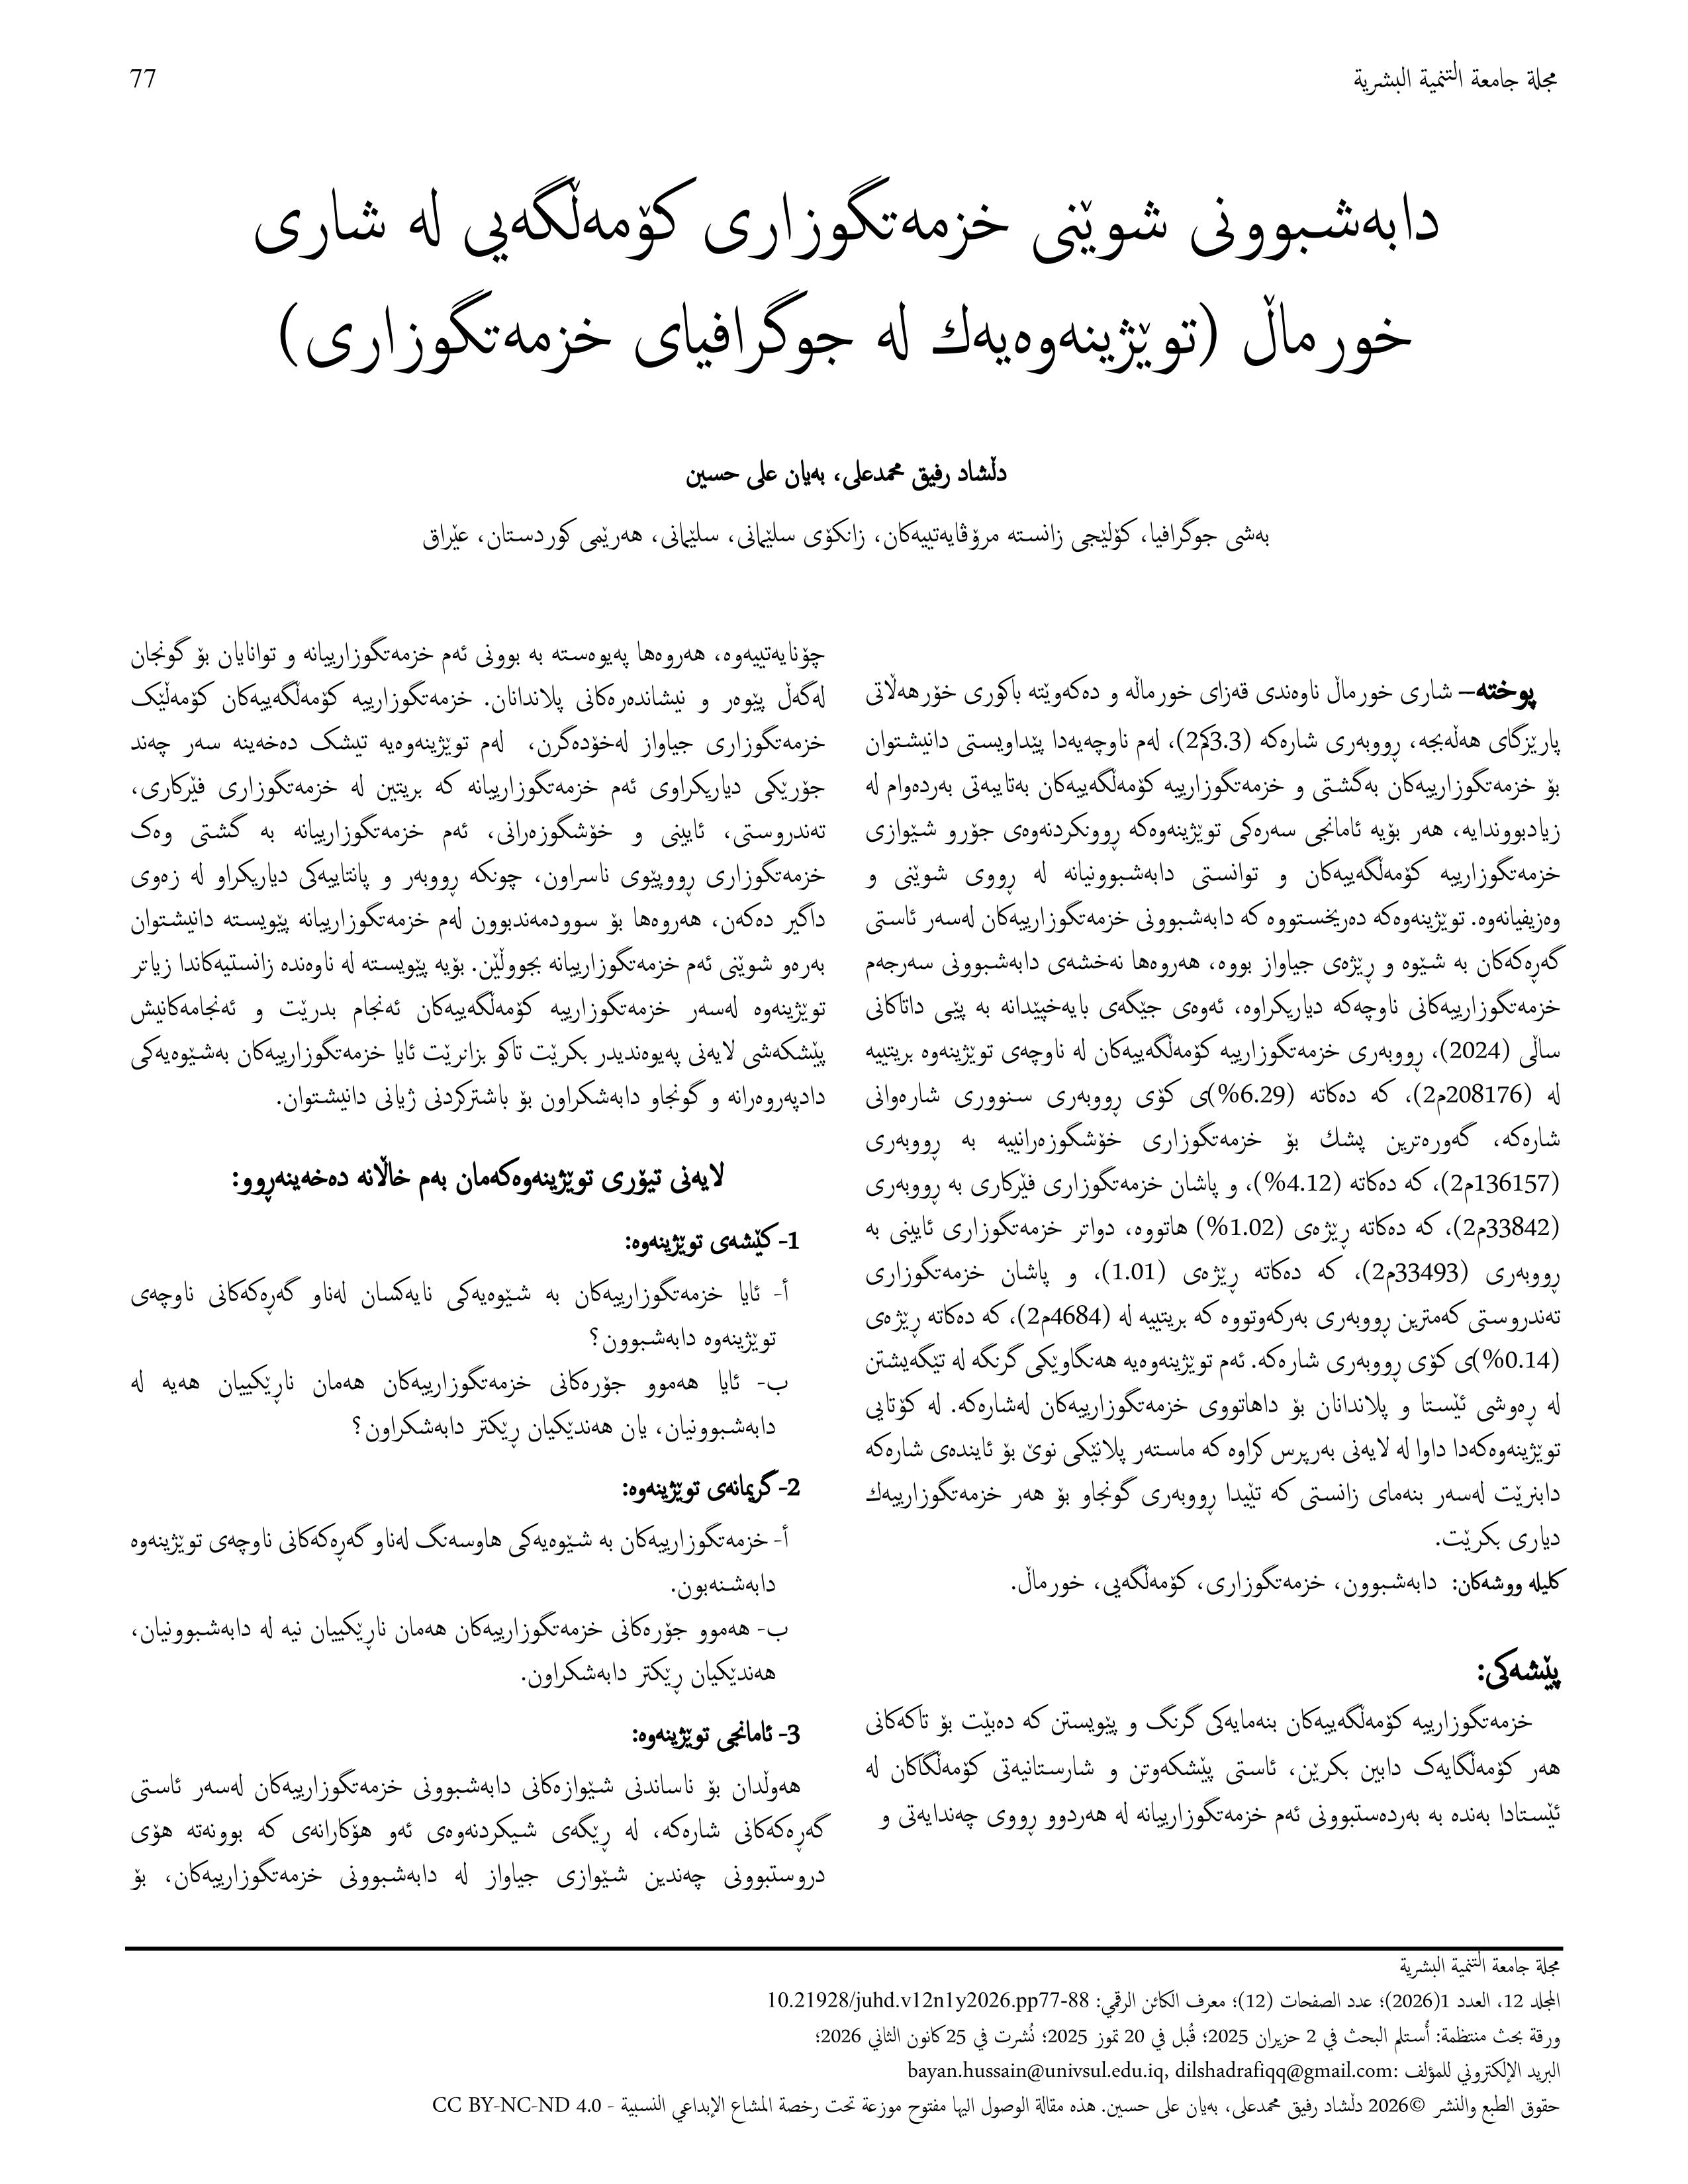 مجلة جامعة التنمية البشرية
77
دابەشبوونی شوێنی خزمەتگوزاری کۆمەڵگەیی لە شاری
خورماڵ (توێژینەوەیەك لە جوگرافیای خزمەتگوزاری)
دڵشاد رفیق محمدعلی، بەیان علی حسین
بەشی جوگرافیا، کۆلێجی زانستە مرۆڤایەتییەکان، زانکۆی سلێمانی، سلێمانی، هەرێمی کوردستان، عێراق
پوختە– شاری خورماڵ ناوەندی قەزای خورماڵە و دەکەوێتە باکوری خۆرهەڵاتی
پارێزگای هەڵەبجە، ڕووبەری شارەکە (3.3کم2)، لەم ناوچەیەدا پێداویستی دانیشتوان
بۆ خزمەتگوزارییەکان بەگشتی و خزمەتگوزارییە کۆمەڵگەییەکان بەتایبەتی بەردەوام لە
زیادبووندایە، هەر بۆیە ئامانجی سەرەکی توێژینەوەکە ڕوونکردنەوەی جۆرو شێوازی
خزمەتگوزارییە کۆمەڵگەییەکان و توانستی دابەشبوونیانە لە ڕووی شوێنی و
وەزیفیانەوە. توێژینەوەکە دەریخستووە کە دابەشبوونی خزمەتگوزارییەکان لەسەر ئاستی
گەڕەکەکان بە شێوە و ڕێژەی جیاواز بووە، هەروەها نەخشەی دابەشبوونی سەرجەم
خزمەتگوزارییەکانی ناوچەکە دیاریکراوە، ئەوەی جێگەی بایەخپێدانە بە پێی داتاکانی
ساڵی (2024)، ڕووبەری خزمەتگوزارییە کۆمەڵگەییەکان لە ناوچەی توێژینەوە بریتییە
لە (208176م2)، کە دەکاتە (6.29%)ی کۆی ڕووبەری سنووری شارەوانی
شارەکە، گەورەترین پشك بۆ خزمەتگوزاری خۆشگوزەرانییە بە ڕووبەری
(136157م2)، کە دەکاتە (4.12%)، و پاشان خزمەتگوزاری فێرکاری بە ڕووبەری
(33842م2)، کە دەکاتە ڕێژەی (1.02%) هاتووە، دواتر خزمەتگوزاری ئایینی بە
ڕووبەری (33493م2)، کە دەکاتە ڕێژەی (1.01)، و پاشان خزمەتگوزاری
تەندروستی کەمترین ڕووبەری بەرکەوتووە کە بریتییە لە (4684م2)، کە دەکاتە ڕێژەی
(0.14%)ی کۆی ڕووبەری شارەکە. ئەم توێژینەوەیە هەنگاوێکی گرنگە لە تێگەیشتن
لە ڕەوشی ئێستا و پلاندانان بۆ داهاتووی خزمەتگوزارییەکان لەشارەکە. لە کۆتایی
توێژینەوەکەدا داوا لە لایەنی بەرپرس کراوە کە ماستەر پلانێکی نوێ بۆ ئایندەی شارەکە
دابنرێت لەسەر بنەمای زانستی کە تێیدا ڕووبەری گونجاو بۆ هەر خزمەتگوزارییەك
دیاری بکرێت.
کلیلە ووشەکان: دابەشبوون، خزمەتگوزاری، کۆمەڵگەیی، خورماڵ.
پێشەکی:
خزمەتگوزارییە کۆمەڵگەییەکان بنەمایەکی گرنگ و پێویستن کە دەبێت بۆ تاکەکانی
هەر کۆمەڵگایەک دابین بکرێن، ئاستی پێشکەوتن و شارستانیەتی کۆمەڵگاکان لە
ئێستادا بەندە بە بەردەستبوونی ئەم خزمەتگوزارییانە لە هەردوو ڕووی چەندایەتی و
چۆنایەتییەوە، هەروەها پەیوەستە بە بوونی ئەم خزمەتگوزارییانە و توانایان بۆ گونجان
لەگەڵ پێوەر و نیشاندەرەکانی پلاندانان. خزمەتگوزارییە کۆمەڵگەییەکان کۆمەڵێک
خزمەتگوزاری جیاواز لەخۆدەگرن، لەم توێژینەوەیە تیشک دەخەینە سەر چەند
جۆرێکی دیاریکراوی ئەم خزمەتگوزارییانە کە بریتین لە خزمەتگوزاری فێرکاری،
تەندروستی، ئایینی و خۆشگوزەرانی، ئەم خزمەتگوزارییانە بە گشتی وەک
خزمەتگوزاری ڕووپێوی ناسراون، چونکە ڕووبەر و پانتاییەکی دیاریکراو لە زەوی
داگیر دەکەن، هەروەها بۆ سوودمەندبوون لەم خزمەتگوزارییانە پێویستە دانیشتوان
بەرەو شوێنی ئەم خزمەتگوزارییانە بجووڵێن. بۆیە پێویستە لە ناوەندە زانستیەکاندا زیاتر
توێژینەوە لەسەر خزمەتگوزارییە کۆمەڵگەییەکان ئەنجام بدرێت و ئەنجامەکانیش
پێشکەشی لایەنی پەیوەندیدر بکرێت تاکو بزانرێت ئایا خزمەتگوزارییەکان بەشێوەیەکی
دادپەروەرانە و گونجاو دابەشکراون بۆ باشترکردنی ژیانی دانیشتوان.
لایەنی تیۆری توێژینەوەکەمان بەم خاڵانە دەخەینەڕوو:
1- کێشەی توێژینەوە:
أ- ئایا خزمەتگوزارییەکان بە شێوەیەکی نایەکسان لەناو گەڕەکەکانی ناوچەی
توێژینەوە دابەشبوون؟
ب- ئایا هەموو جۆرەکانی خزمەتگوزارییەکان هەمان ناڕێکییان هەیە لە
دابەشبوونیان، یان هەندێکیان ڕێکتر دابەشکراون؟
2- گریمانەی توێژینەوە:
أ- خزمەتگوزارییەکان بە شێوەیەکی هاوسەنگ لەناو گەڕەکەکانی ناوچەی توێژینەوە
دابەشنەبون.
ب- هەموو جۆرەکانی خزمەتگوزارییەکان هەمان ناڕێکییان نیە لە دابەشبوونیان،
هەندێکیان ڕێکتر دابەشکراون.
3- ئامانجی توێژینەوە:
هەوڵدان بۆ ناساندنی شێوازەکانی دابەشبوونی خزمەتگوزارییەکان لەسەر ئاستی
گەڕەکەکانی شارەکە، لە ڕێگەی شیکردنەوەی ئەو هۆکارانەی کە بوونەتە هۆی
دروستبوونی چەندین شێوازی جیاواز لە دابەشبوونی خزمەتگوزارییەکان، بۆ
مجلة جامعة التنمية البشرية
المجلد 12، العدد 1(2026)؛ عدد الصفحات (12)؛ معرف الكائن الرقمي: 10.21928/juhd.v12n1y2026.pp77-88
ورقة بحث منتظمة: أُستلم البحث في 2 حزيران 2025؛ قُبل في 20 تموز 2025؛ نُشرت في 25 كانون الثاني 2026؛
البريد الإلكتروني للمؤلف :bayan.hussain@univsul.edu.iq, dilshadrafiqq@gmail.com
حقوق الطبع والنشر ©2026 دڵشاد رفیق محمدعلی، بەیان علی حسین. هذه مقالة الوصول اليها مفتوح موزعة تحت رخصة المشاع الإبداعي النسبية - CC BY-NC-ND 4.0